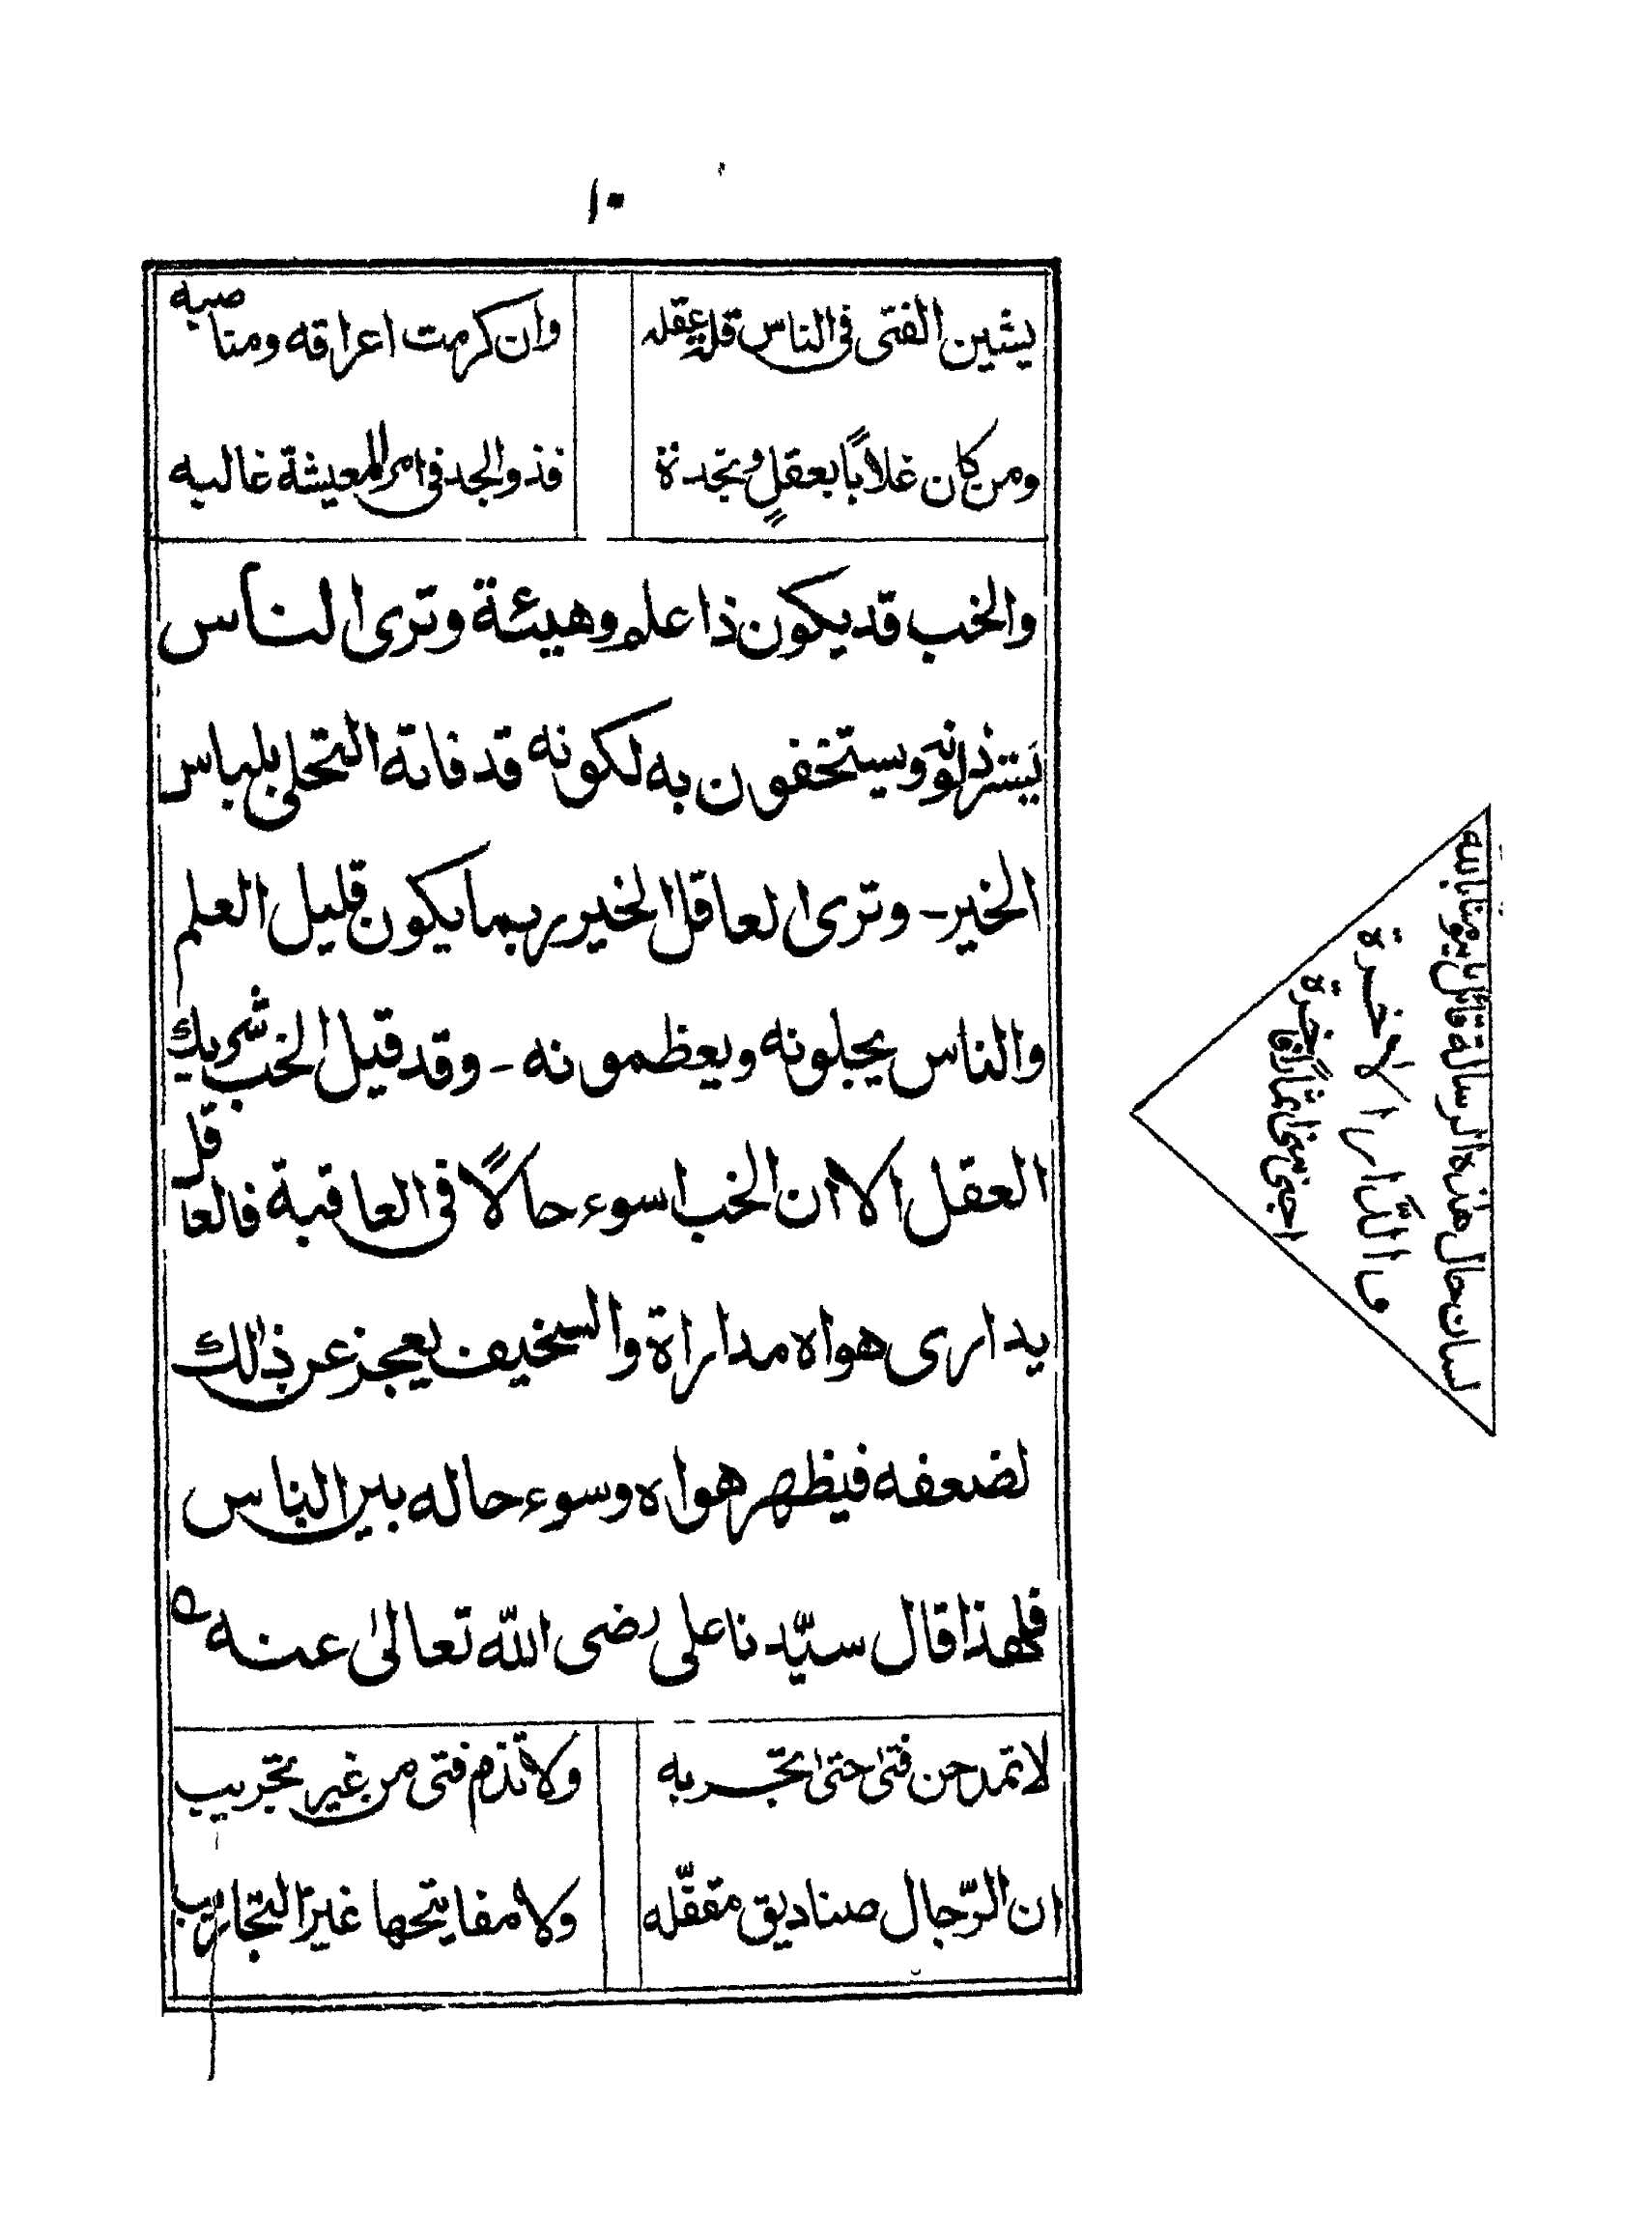 ١٠
يشين الفتى فى الناس قلة عقله وان كرمت اعراقه ومناصبه
ومن كان غلاًبا بعقلٍ ونجدة فذو الجد فى امر المعيشة غالبه
والخب قد يكون ذا علم وهيئة وترى الناس
يسترذلونه ويستخفون به لكونه قد فاته التحلى بلباس
الخير - وترى العاقل الخير ربما يكون قليل العلم
والناس يجلونه ويعظمونه - وقد قيل الخب شريك
العقل الا ان الخب اسوء حالًا فى العاقبة فالعاقل
يدارى هواه مداراة والسخيف يعجز عن ذٰلك
لضعفه فيظهر هواه وسوء حاله بين الناس
فلهذا قال سيّدنا على رضى الله تعالىٰ عنه ه
لا تمدحن فتىٰ حتىٰ تجّربه ولا تذم فتى من غير تجريب
ان الرّجال صناديق مقفّله ولا مفاتيحها غير التجاريب
لسان حال هذه الرسالة قائل يوقنا بالله
والدّار الاٰخرة